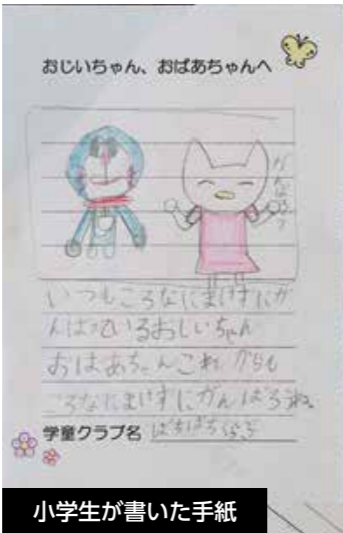 おじいちゃん、おばあちゃんへ
いつもころなにまけずにが
んばっているおじいちゃん
おばあちゃんこれからも
ころなにまけずにがんばろうね。
学童クラブ名 ぱちぱちくらぶ
小学生が書いた手紙